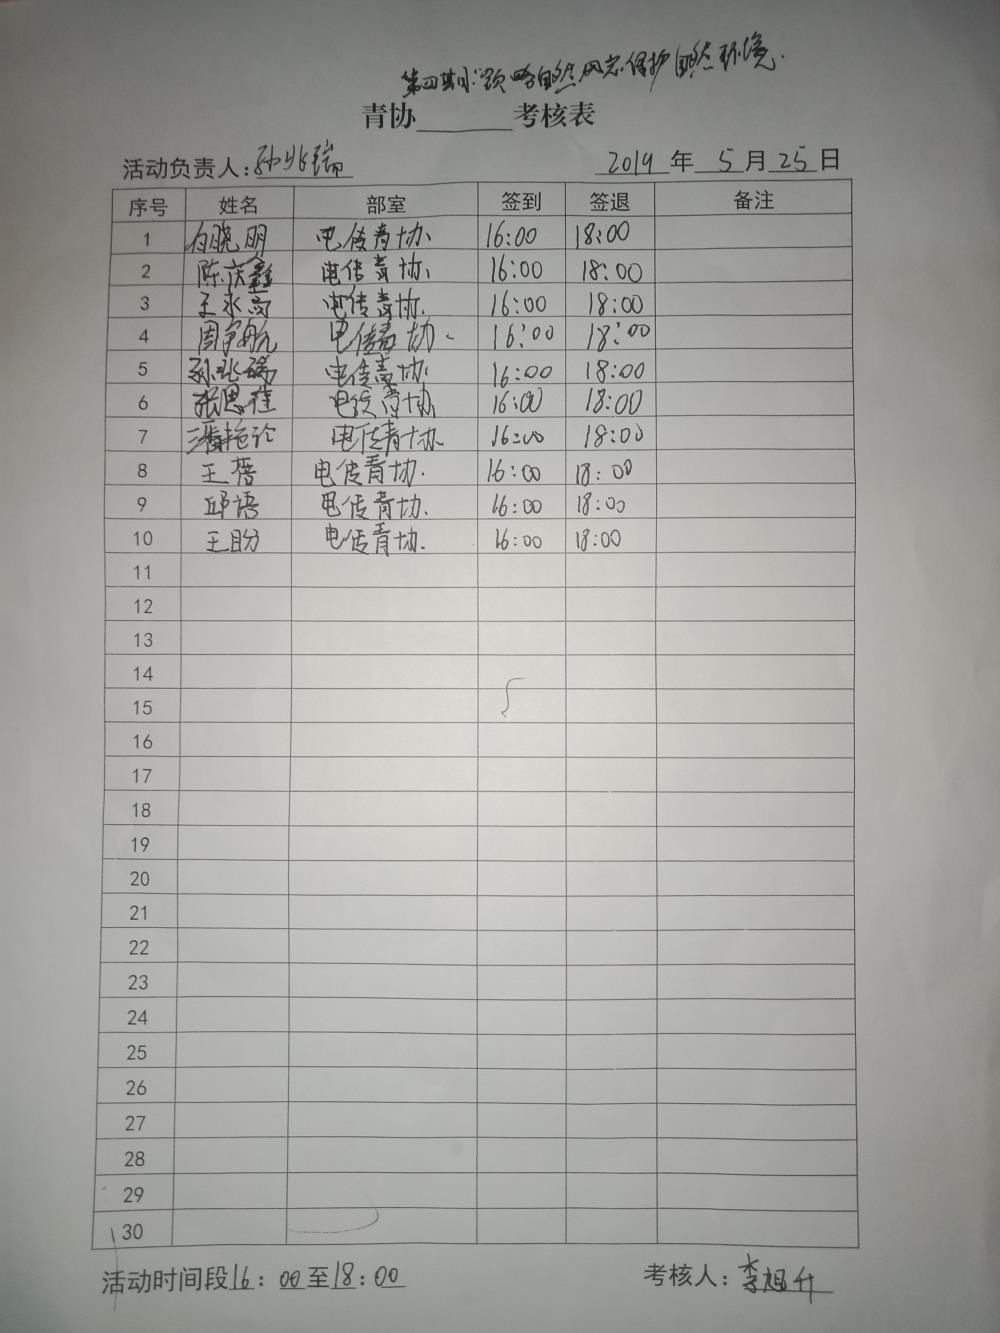 第四期:领略自然风光.保护自然环境.
青协______考核表
活动负责人:孙兆瑞 2019 年 5 月 25 日
序号 姓名 部室 签到 签退 备注
1 白晓明 电传青协. 16:00 18:00
2 陈庆鑫 电传青协. 16:00 18:00
3 王永高 电传青协. 16:00 18:00
4 周宇航 电传青协. 16:00 18:00
5 孙兆瑞 电传青协. 16:00 18:00
6 张思佳 电传青协 16:00 18:00
7 电传青协. 16:00 18:00
8 王蓓 电传青协. 16:00 18:00
9 邱语 电传青协. 16:00 18:00
10 王盼 电传青协. 16:00 18:00
11
12
13
14
15
16
17
18
19
20
21
22
23
24
25
26
27
28
29
30
活动时间段16:00至18:00 考核人:李旭升